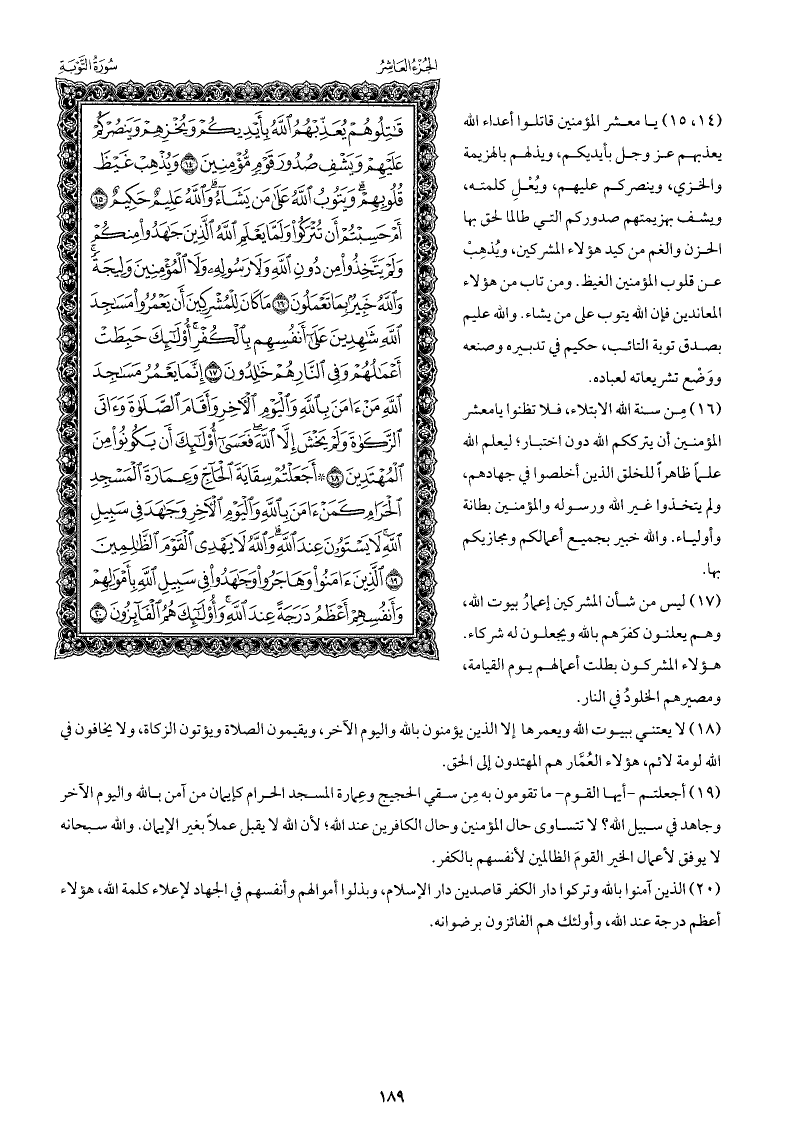 الجزء العاشر
سورة التوبة
قَٰتِلُوهُمْ يُعَذِّبْهُمُ ٱللَّهُ بِأَيْدِيكُمْ وَيُخْزِهِمْ وَيَنصُرْكُمْ
عَلَيْهِمْ وَيَشْفِ صُدُورَ قَوْمٍ مُّؤْمِنِينَ ١٤ وَيُذْهِبْ غَيْظَ
قُلُوبِهِمْ ۗ وَيَتُوبُ ٱللَّهُ عَلَىٰ مَن يَشَآءُ ۗ وَٱللَّهُ عَلِيمٌ حَكِيمٌ ١٥
أَمْ حَسِبْتُمْ أَن تُتْرَكُوا۟ وَلَمَّا يَعْلَمِ ٱللَّهُ ٱلَّذِينَ جَٰهَدُوا۟ مِنكُمْ
وَلَمْ يَتَّخِذُوا۟ مِن دُونِ ٱللَّهِ وَلَا رَسُولِهِۦ وَلَا ٱلْمُؤْمِنِينَ وَلِيجَةً ۚ
وَٱللَّهُ خَبِيرٌۢ بِمَا تَعْمَلُونَ ١٦ مَا كَانَ لِلْمُشْرِكِينَ أَن يَعْمُرُوا۟ مَسَٰجِدَ
ٱللَّهِ شَٰهِدِينَ عَلَىٰٓ أَنفُسِهِم بِٱلْكُفْرِ ۚ أُو۟لَٰٓئِكَ حَبِطَتْ
أَعْمَٰلُهُمْ وَفِى ٱلنَّارِ هُمْ خَٰلِدُونَ ١٧ إِنَّمَا يَعْمُرُ مَسَٰجِدَ
ٱللَّهِ مَنْ ءَامَنَ بِٱللَّهِ وَٱلْيَوْمِ ٱلْءَاخِرِ وَأَقَامَ ٱلصَّلَوٰةَ وَءَاتَى
ٱلزَّكَوٰةَ وَلَمْ يَخْشَ إِلَّا ٱللَّهَ ۖ فَعَسَىٰٓ أُو۟لَٰٓئِكَ أَن يَكُونُوا۟ مِنَ
ٱلْمُهْتَدِينَ ١٨ ۞ أَجَعَلْتُمْ سِقَايَةَ ٱلْحَآجِّ وَعِمَارَةَ ٱلْمَسْجِدِ
ٱلْحَرَامِ كَمَنْ ءَامَنَ بِٱللَّهِ وَٱلْيَوْمِ ٱلْءَاخِرِ وَجَٰهَدَ فِى سَبِيلِ
ٱللَّهِ ۚ لَا يَسْتَوُۥنَ عِندَ ٱللَّهِ ۗ وَٱللَّهُ لَا يَهْدِى ٱلْقَوْمَ ٱلظَّٰلِمِينَ
١٩ ٱلَّذِينَ ءَامَنُوا۟ وَهَاجَرُوا۟ وَجَٰهَدُوا۟ فِى سَبِيلِ ٱللَّهِ بِأَمْوَٰلِهِمْ
وَأَنفُسِهِمْ أَعْظَمُ دَرَجَةً عِندَ ٱللَّهِ ۚ وَأُو۟لَٰٓئِكَ هُمُ ٱلْفَآئِزُونَ ٢٠
(١٤، ١٥) يا معشر المؤمنين قاتلوا أعداء الله
يعذبهم عز وجل بأيديكم، ويذلهم بالهزيمة
والخزي، وينصركم عليهم، ويُعْلِ كلمته،
ويشف بهزيمتهم صدوركم التي طالما لحق بها
الحزن والغم من كيد هؤلاء المشركين، ويُذهِبْ
عن قلوب المؤمنين الغيظ. ومن تاب من هؤلاء
المعاندين فإن الله يتوب على من يشاء. والله عليم
بصدق توبة التائب، حكيم في تدبيره وصنعه
ووَضْع تشريعاته لعباده.
(١٦) مِن سنة الله الابتلاء، فلا تظنوا يامعشر
المؤمنين أن يترككم الله دون اختبار؛ ليعلم الله
علماً ظاهراً للخلق الذين أخلصوا في جهادهم،
ولم يتخذوا غير الله ورسوله والمؤمنين بطانة
وأولياء. والله خبير بجميع أعمالكم ومجازيكم
بها.
(١٧) ليس من شأن المشركين إعمارُ بيوت الله،
وهم يعلنون كفرَهم بالله ويجعلون له شركاء.
هؤلاء المشركون بطلت أعمالهم يوم القيامة،
ومصيرهم الخلودُ في النار.
(١٨) لا يعتني ببيوت الله ويعمرها إلا الذين يؤمنون بالله واليوم الآخر، ويقيمون الصلاة ويؤتون الزكاة، ولا يخافون في
الله لومة لائم، هؤلاء العُمَّار هم المهتدون إلى الحق.
(١٩) أجعلتم -أيها القوم- ما تقومون به مِن سقي الحجيج وعِمارة المسجد الحرام كإيمان من آمن بالله واليوم الآخر
وجاهد في سبيل الله؟ لا تتساوى حال المؤمنين وحال الكافرين عند الله؛ لأن الله لا يقبل عملاً بغير الإيمان. والله سبحانه
لا يوفق لأعمال الخير القومَ الظالمين لأنفسهم بالكفر.
(٢٠) الذين آمنوا بالله وتركوا دار الكفر قاصدين دار الإسلام، وبذلوا أموالهم وأنفسهم في الجهاد لإعلاء كلمة الله، هؤلاء
أعظم درجة عند الله، وأولئك هم الفائزون برضوانه.
١٨٩